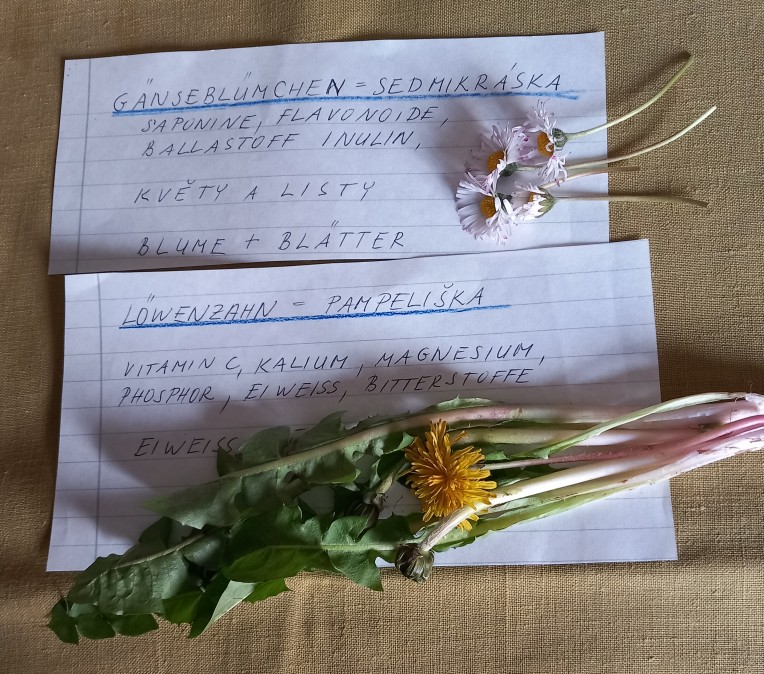 GÄNSEBLÜMCHEN = SEDMIKRÁSKA
SAPONINE, FLAVONOIDE,
BALLASTOFF INULIN,
KVĚTY A LISTY
BLUME + BLÄTTER
LÖWENZAHN = PAMPELIŠKA
VITAMIN C, KALIUM, MAGNESIUM,
PHOSPHOR, EIWEISS, BITTERSTOFFE
EIWEISS